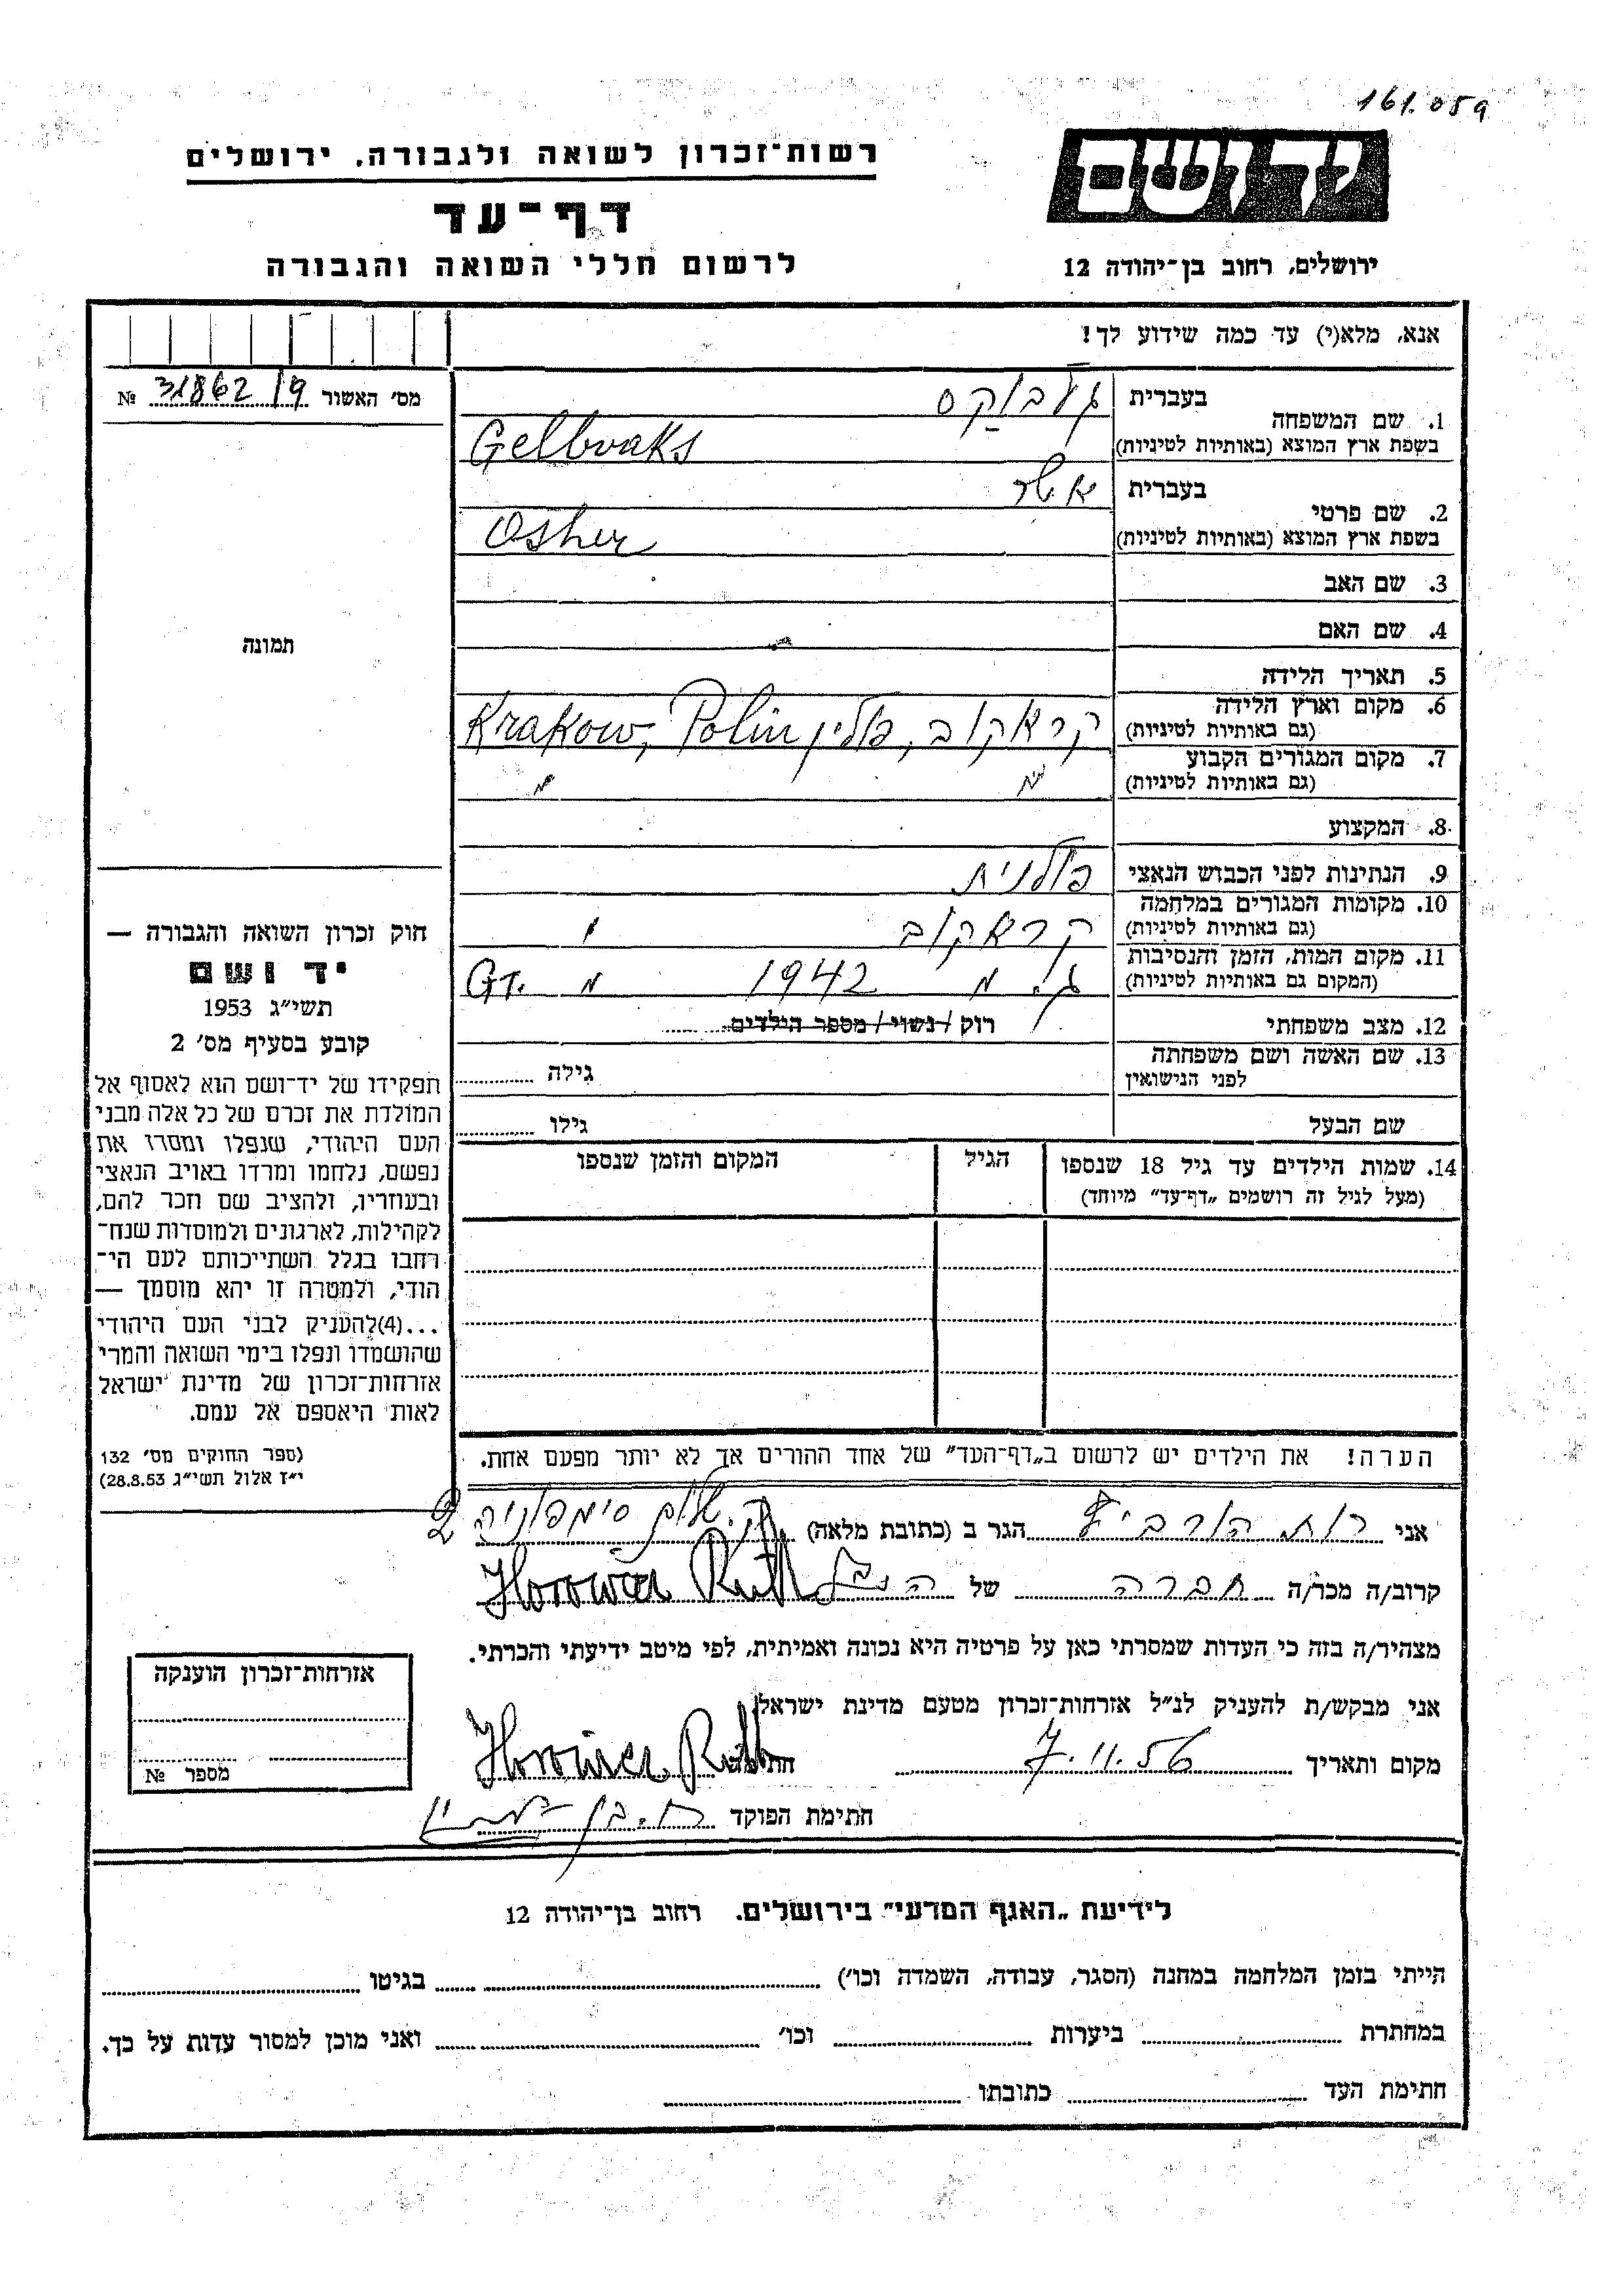 161.059
ידושם
רשות־זכרון לשואה ולגבורה, ירושלים
דף־עד
לרשום חללי השואה והגבורה
ירושלים, רחוב בן־יהודה 12
אנא, מלא(י) עד כמה שידוע לך!
מס' האשור 31862/9 №
1. שם המשפחה
בעברית
געלבוקס
בשפת ארץ המוצא (באותיות לטיניות)
Gelbvaks
2. שם פרטי
בעברית
אשר
בשפת ארץ המוצא (באותיות לטיניות)
Osher
3. שם האב
4. שם האם
תמונה
5. תאריך הלידה
6. מקום וארץ הלידה
(גם באותיות לטיניות)
קראקוב, פולין Krakow, Polin
7. מקום המגורים הקבוע
(גם באותיות לטיניות)
" "
8. המקצוע
9. הנתינות לפני הכבוש הנאצי
פולנית
10. מקומות המגורים במלחמה
(גם באותיות לטיניות)
קראקוב
11. מקום המות, הזמן והנסיבות
(המקום גם באותיות לטיניות)
1942
12. מצב משפחתי
רוק / נשוי / מספר הילדים
13. שם האשה ושם משפחתה
לפני הנישואין
גילה
שם הבעל
גילו
חוק זכרון השואה והגבורה —
יד ושם
תשי״ג 1953
קובע בסעיף מס' 2
תפקידו של יד־ושם הוא לאסוף אל
המולדת את זכרם של כל אלה מבני
העם היהודי, שנפלו ומסרו את
נפשם, נלחמו ומרדו באויב הנאצי
ובעוזריו, ולהציב שם וזכר להם,
לקהילות, לארגונים ולמוסדות שנח־
רבו בגלל השתייכותם לעם הי־
הודי, ולמטרה זו יהא מוסמך —
...(4)להעניק לבני העם היהודי
שהושמדו ונפלו בימי השואה והמרי
אזרחות־זכרון של מדינת ישראל
לאות היאספם אל עמם.
(ספר החוקים מס' 132
י״ז אלול תשי״ג 28.8.53)
14. שמות הילדים עד גיל 18 שנספו
(מעל לגיל זה רושמים „דף־עד״ מיוחד)
הגיל
המקום והזמן שנספו
הערה! את הילדים יש לרשום ב„דף־העד״ של אחד ההורים אך לא יותר מפעם אחת.
אני רות הורביץ הגר ב (כתובת מלאה)
קרוב/ה מכר/ה חברה של הנ"ל Horowicz Ruth
מצהיר/ה בזה כי העדות שמסרתי כאן על פרטיה היא נכונה ואמיתית, לפי מיטב ידיעתי והכרתי.
אני מבקש/ת להעניק לנ״ל אזרחות־זכרון מטעם מדינת ישראל
מקום ותאריך 7.11.56 חתימה Horowicz Ruth
חתימת הפוקד
אזרחות־זכרון הוענקה
מספר №
לידיעת „האגף המדעי״ בירושלים, רחוב בן־יהודה 12
הייתי בזמן המלחמה במחנה (הסגר, עבודה, השמדה וכו׳) בגיטו
במחתרת ביערות וכו׳ ואני מוכן למסור עדות על כך.
חתימת העד כתובתו